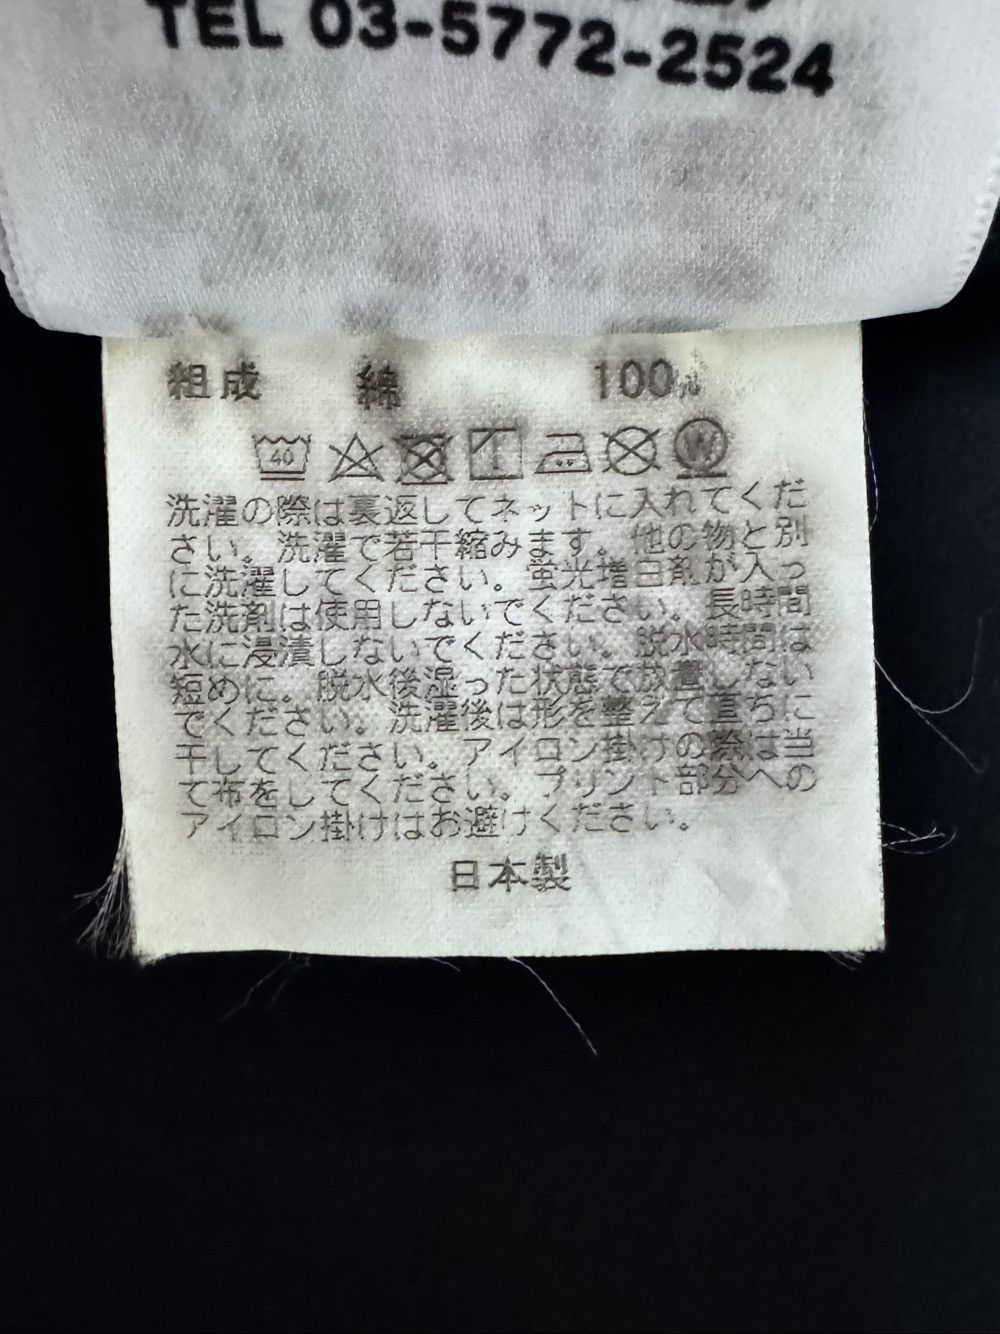 TEL 03-5772-2524
組成 綿 100%
40
W
洗濯の際は裏返してネットに入れてくだ
さい。洗濯で若干縮みます。他の物と別
に洗濯してください。蛍光増白剤が入っ
た洗剤は使用しないでください。長時間
水に浸漬しないでください。脱水時間は
短めに。脱水後湿った状態で放置しない
でください。洗濯後は形を整えて直ちに
干してください。アイロン掛けの際は当
て布をしてください。プリント部分への
アイロン掛けはお避けください。
日本製